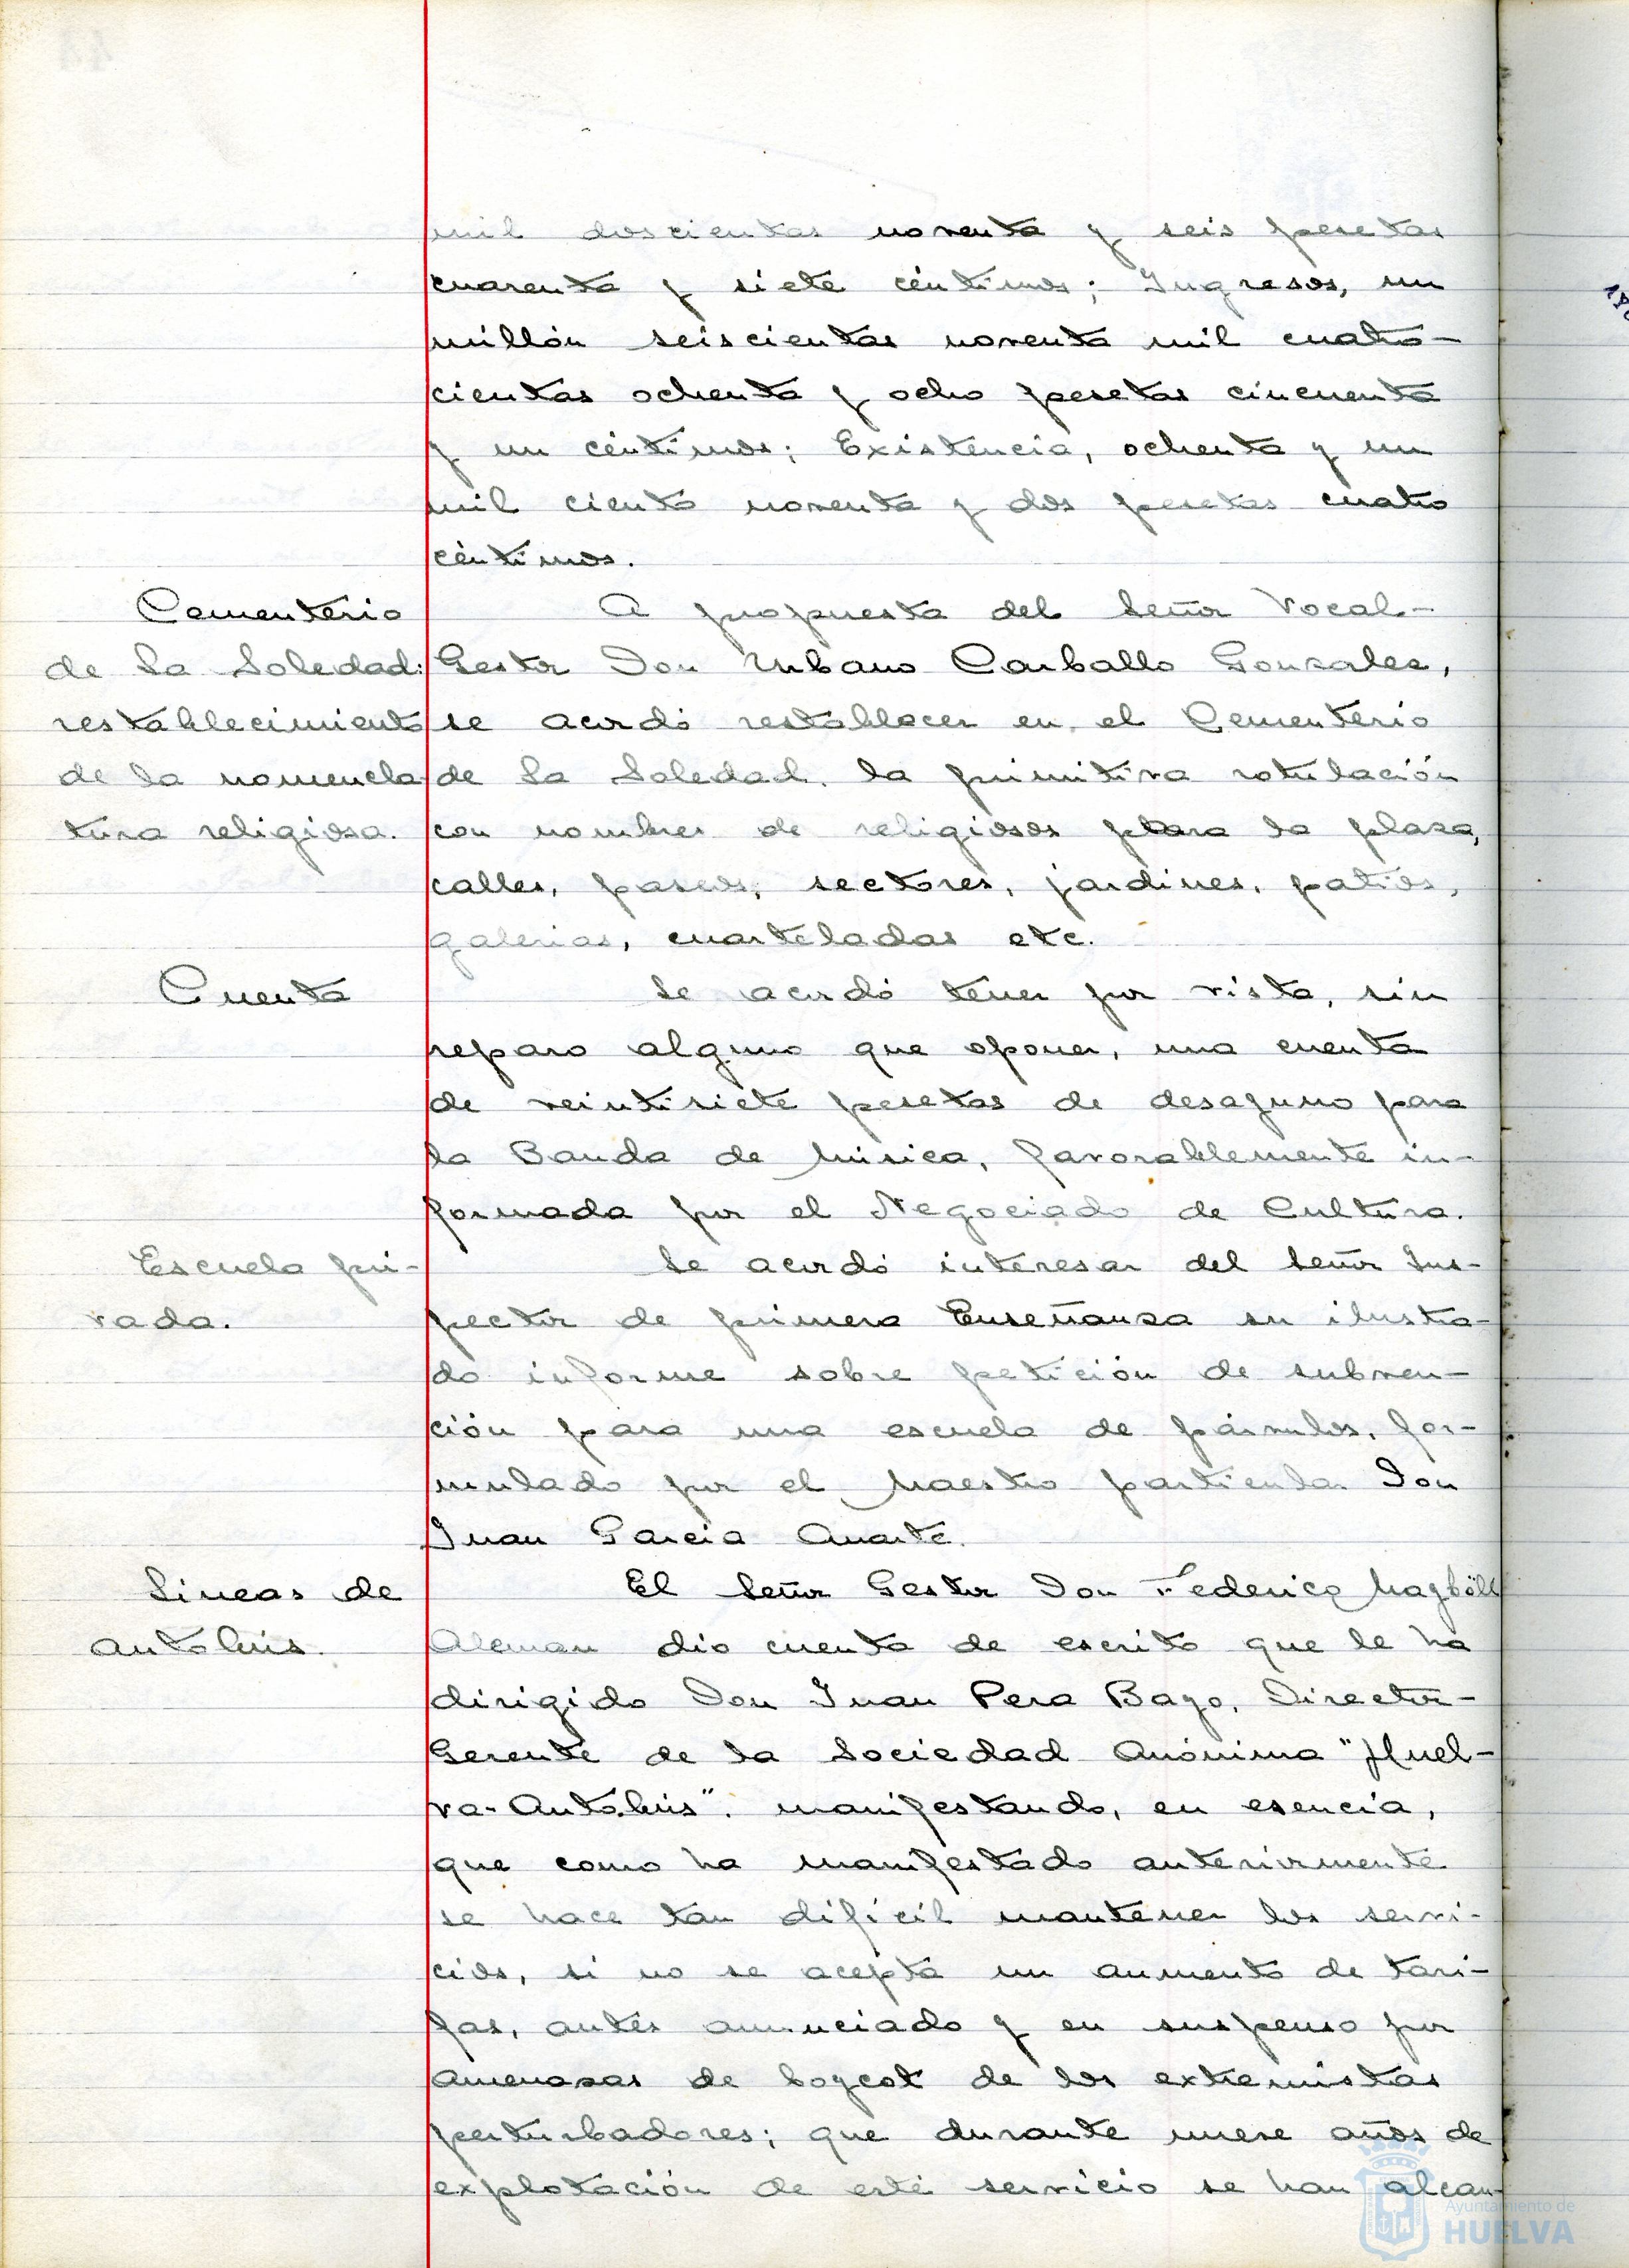 mil doscientas noventa y seis pesetas
cuarenta y siete céntimos; Ingresos, un
millón seiscientas noventa mil cuatro-
cientas ochenta y ocho pesetas cincuenta
y un céntimos; Existencia, ochenta y un
mil ciento noventa y dos pesetas cuatro
céntimos.
Cementerio
de La Soledad:
restablecimiento
de la nomencla-
tura religiosa.
A propuesta del Señor Vocal-
Gestor Don Urbano Carballo Gonzalez,
se acordó restablecer en el Cementerio
de La Soledad, la primitiva rotulación
con nombres de religiosos para la plaza,
calles, paseos, sectores, jardines, patios,
galerias, cuarteladas etc.
Cuenta
Se acordó tener por vista, sin
reparo alguno que oponer, una cuenta
de veintisiete pesetas de desayuno para
la Banda de Música, favorablemente in-
formada por el Negociado de Cultura.
Escuela pri-
vada.
Se acordó interesar del Señor Ins-
pector de primera Enseñanza su ilustra-
do informe sobre petición de subven-
ción para una escuela de párvulos, for-
mulado por el Maestro particular Don
Juan Garcia Duarte.
Lineas de
autobús.
El Señor Gestor Don Federico
Aleman dio cuenta de escrito que le ha
dirigido Don Juan Pera Bayo, Director-
Gerente de la Sociedad Anónima "Huel-
va-Autobús", manifestando, en esencia,
que como ha manifestado anteriormente
se hace tan difícil mantener los servi-
cios, si no se acepta un aumento de tari-
fas, antes anunciado y en suspenso por
amenazas de boycot de los extremistas
perturbadores; que durante nueve años de
explotación de este servicio se han alcan-
Ayuntamiento de
HUELVA